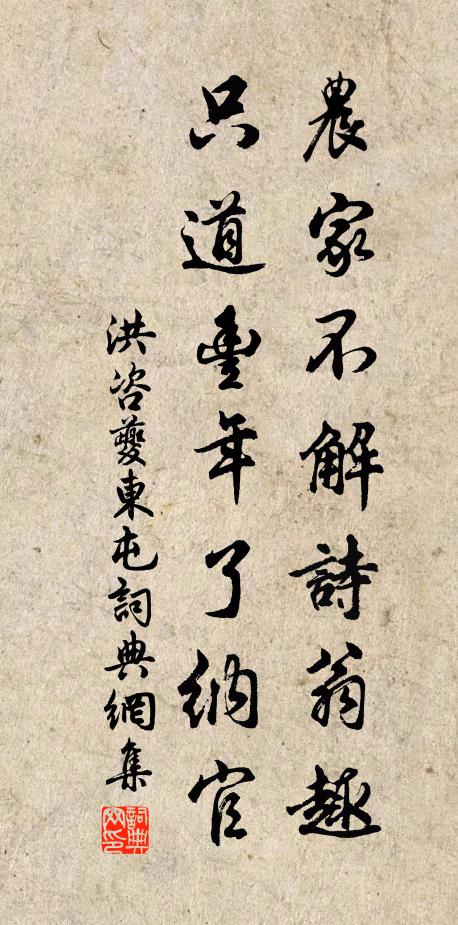 農家不解詩翁趣
只道豐年了納官
洪咨夔東屯詞典網集
詞典网印